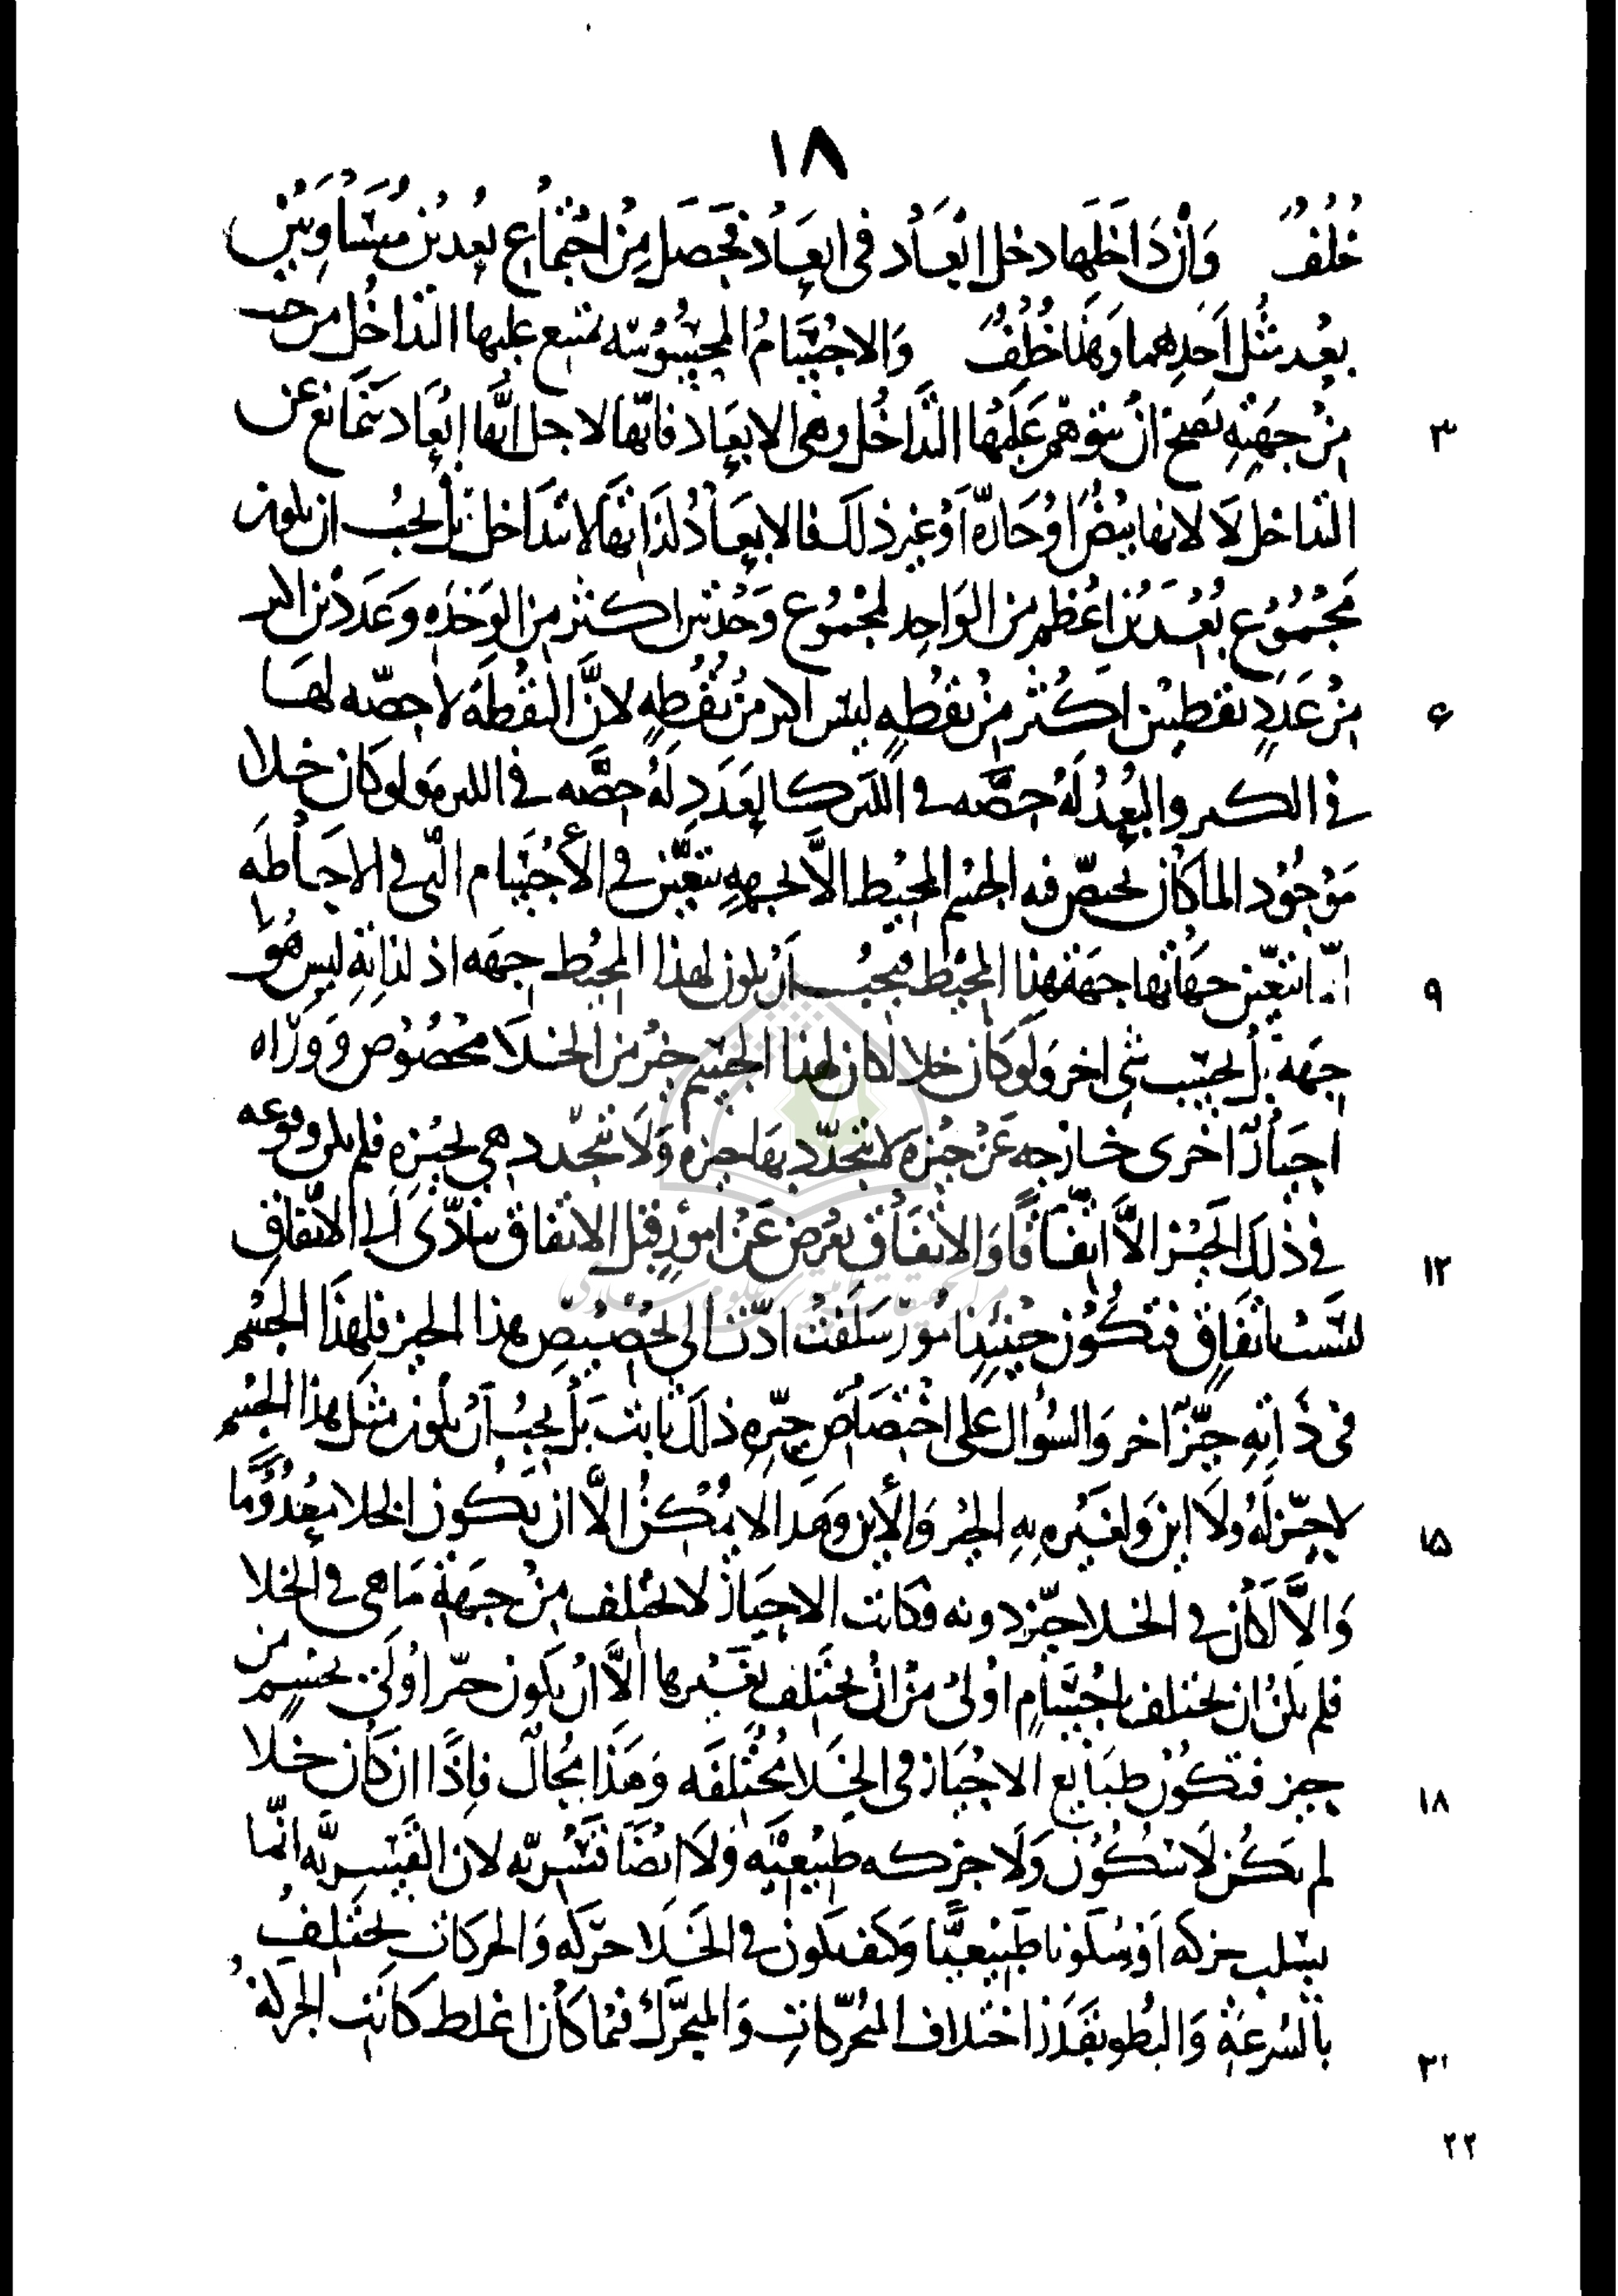 ١٨
خلف وان داخلها دخل ابعاد فى ابعاد فحصل من اجتماع بعدين متساويين
بعد مثل احدهما وهذا خلف والاجسام المحسوسه يمتنع عليها التداخل من حيث
من جهته يصح ان يتوهم عليها التداخل وهى الابعاد فانها لاجل انها ابعاد يتمانع عن
٣
التداخل لا لانها بيض او حارّة او غير ذلك فالابعاد لذاتها لا تتداخل بل يجب ان يكون
مجموع بعدين اعظم من الواحد لمجموع وحدتين اكثر من الوحده وعددين اكثر
من عدد نقطتين اكثر من نقطه ليس اكبر من نقطه لان النقطة لا حصّه لها
۶
فى الكبر والبعد له حصّه فى الكبر كالعدد له حصّه فى الكثره ولو كان خلا
موجود الما كان يختصّ فيه الجسم المحيط الا لجهة تتعيّن فى الأجسام التى فى الاحاطه
انما تتعيّن جهاتها جهة هذا المحيط فيجب أن يكون لهذا المحيط جهه اذ لذاته ليس هو
٩
جهة بل بحسب شى اخر ولو كان خلا لكان لهذا الجسم حيّز من الخلا مخصوص ووراه
احياز اخرى خارجه عن حيزه لا يتحدّد بها حيزه ولا تتحدد هى بحيزه فلم يكن وقوعه
فى ذلك الحيز الّا اتفاقا والاتفاق يعرض عن امور قبل الاتفاق يتادّى الى الاتفاق
١٢
ليست باتفاق فتكون حينئذ امور سلفت ادّت الى تخصيص بهذا الحيز فلهذا الجسم
فى ذاته حيّز اخر والسؤال على اختصاص حيّزه ذلك ثابت بل يجب أن يكون مثل هذا الجسم
لا حيّز له ولا اين ولغيره به الحيز والأين وهذا لا يمكن الّا ان يكون الخلا معدوما
١۵
والّا لكان فى الخلا حيّز دونه وكانت الاحياز لا تختلف من جهة ما هى فى الخلا
فلم يكن ان يختلف باجسام اولى من ان يختلف بغيرها الّا ان يكون حيّز اولى بجسم من
حيز فتكون طبايع الاحياز فى الخلا مختلفه وهذا محال فاذا ان كان خلا
١٨
لم يكن لا سكون ولا حركه طبيعيّه ولا ايضا قسريّه لان القسريّه انّما
يسلب حركه او سكونا طبيعيّا وكيف يكون فى الخلا حركه والحركات تختلف
بالسرعة والبطو بقدر اختلاف المحركات والمتحرّك فيما كان اغلظ كانت الحركة
٢١
٢٢